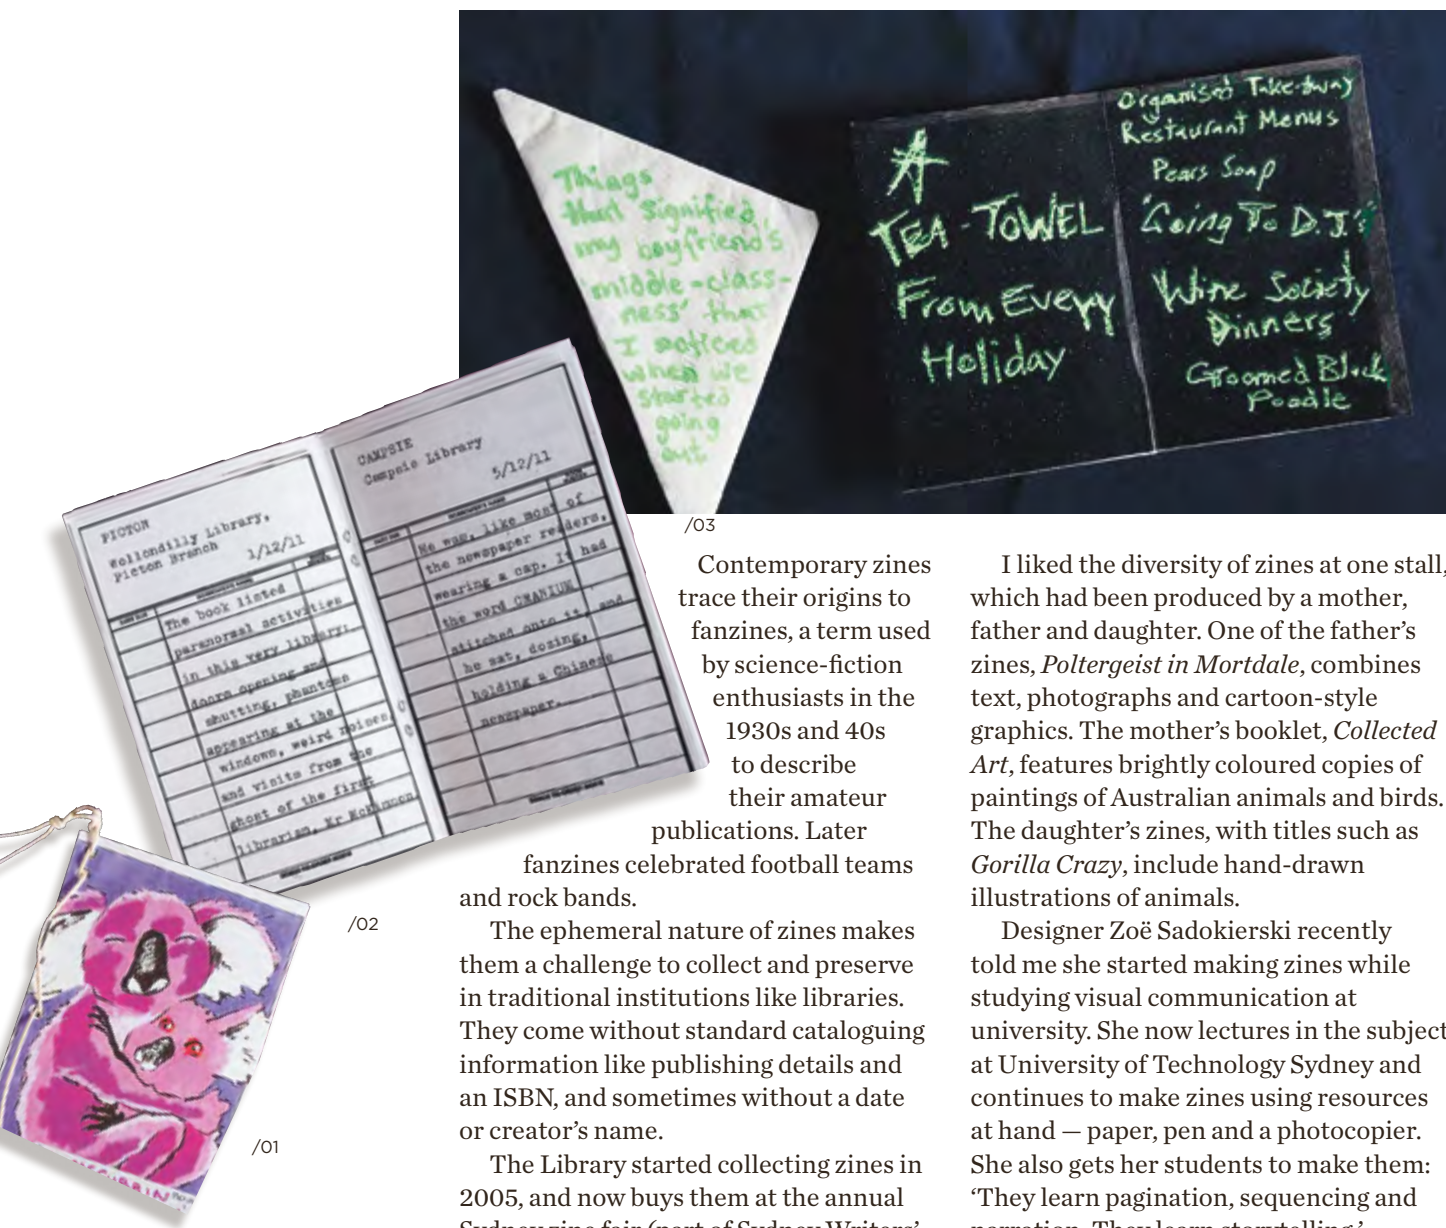 Things
that signified
my boyfriend's
'middle-class-
ness' that
I noticed
when we
started
going
out
A
TEA-TOWEL
From Every
Holiday
Organised Take-away
Restaurant Menus
Pears Soap
'Going To D.J.'s'
Wine Society
Dinners
Groomed Black
Poodle
/03
PICTON
Wollondilly Library,
Picton Branch
1/12/11
The book listed
paranormal activities
in this very library:
doors opening and
shutting, phantoms
appearing at the
windows, weird noises,
and visits from the
ghost of the first
librarian, Mr McKinnon.
CAMPSIE
Campsie Library
5/12/11
He was, like most of
the newspaper readers,
wearing a cap. It had
the word CRANIUM
stitched onto it, and
he sat, dozing,
holding a Chinese
newspaper.
/02
/01
Contemporary zines
trace their origins to
fanzines, a term used
by science-fiction
enthusiasts in the
1930s and 40s
to describe
their amateur
publications. Later
fanzines celebrated football teams
and rock bands.
The ephemeral nature of zines makes
them a challenge to collect and preserve
in traditional institutions like libraries.
They come without standard cataloguing
information like publishing details and
an ISBN, and sometimes without a date
or creator's name.
The Library started collecting zines in
2005, and now buys them at the annual
Sydney zine fair (part of Sydney Writers'
I liked the diversity of zines at one stall,
which had been produced by a mother,
father and daughter. One of the father's
zines, Poltergeist in Mortdale, combines
text, photographs and cartoon-style
graphics. The mother's booklet, Collected
Art, features brightly coloured copies of
paintings of Australian animals and birds.
The daughter's zines, with titles such as
Gorilla Crazy, include hand-drawn
illustrations of animals.
Designer Zoë Sadokierski recently
told me she started making zines while
studying visual communication at
university. She now lectures in the subject
at University of Technology Sydney and
continues to make zines using resources
at hand — paper, pen and a photocopier.
She also gets her students to make them:
'They learn pagination, sequencing and
narration. They learn storytelling.'